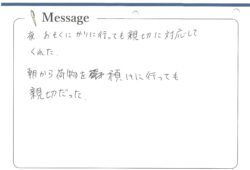 Message
夜 おもくに かりに行っても親切に対応して
くれた.
朝から荷物を 預けに行っても
親切だった.